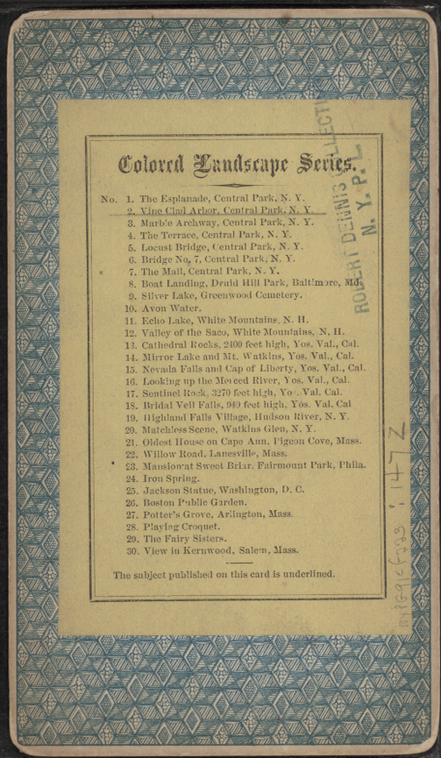 Colored Landscape Series.
No. 1. The Esplanade, Central Park, N. Y.
2. Vine Clad Arbor, Central Park, N. Y.
3. Marble Archway, Central Park, N. Y.
4. The Terrace, Central Park, N. Y.
5. Locust Bridge, Central Park, N. Y.
6. Bridge No. 7, Central Park, N. Y.
7. The Mall, Central Park, N. Y.
8. Boat Landing, Druid Hill Park, Baltimore, Md.
9. Silver Lake, Greenwood Cemetery.
10. Avon Water.
11. Echo Lake, White Mountains, N. H.
12. Valley of the Saco, White Mountains, N. H.
13. Cathedral Rocks, 2400 feet high, Yos. Val., Cal.
14. Mirror Lake and Mt. Watkins, Yos. Val., Cal.
15. Nevada Falls and Cap of Liberty, Yos. Val., Cal.
16. Looking up the Merced River, Yos. Val., Cal.
17. Sentinel Rock, 3270 feet high, Yos. Val. Cal.
18. Bridal Veil Falls, 940 feet high, Yos. Val. Cal
19. Highland Falls Village, Hudson River, N. Y.
20. Matchless Scene, Watkins Glen, N. Y.
21. Oldest House on Cape Ann, Pigeon Cove, Mass.
22. Willow Road, Lanesville, Mass.
23. Mansion at Sweet Briar, Fairmount Park, Phila.
24. Iron Spring.
25. Jackson Statue, Washington, D. C.
26. Boston Public Garden.
27. Potter's Grove, Arlington, Mass.
28. Playing Croquet.
29. The Fairy Sisters.
30. View in Kernwood, Salem, Mass.
The subject published on this card is underlined.
ROBERT DENNIS COLLECTI
N. Y. P. L.
: 1147